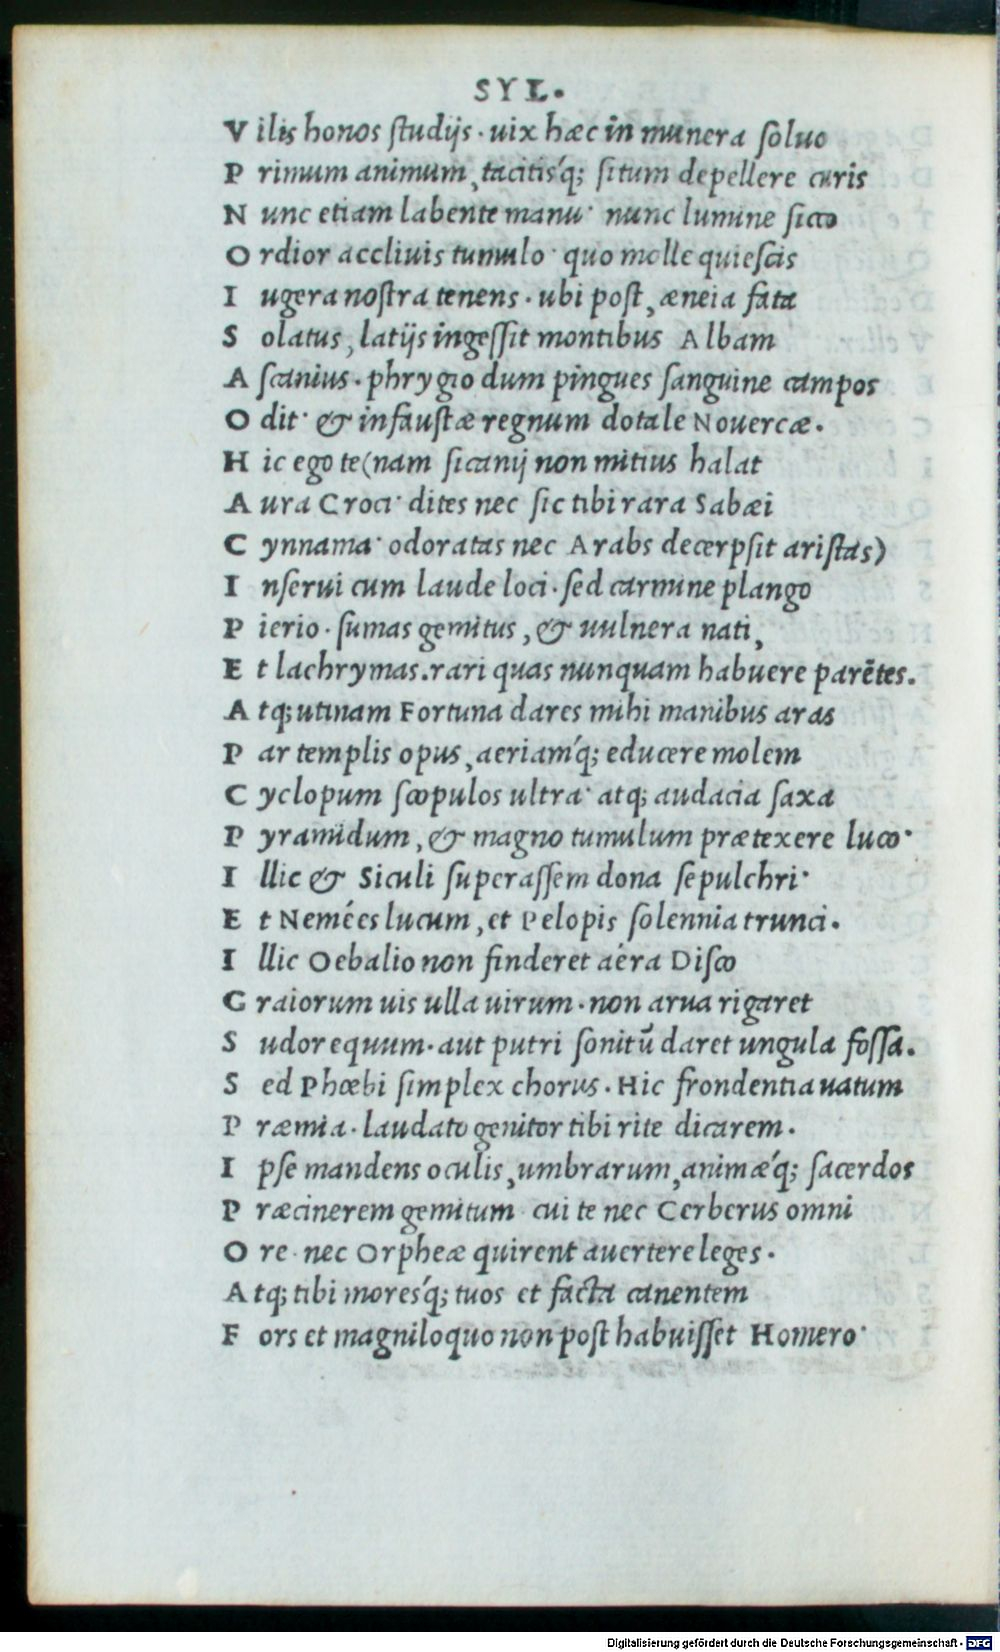 SYL.
V ilis honos studijs. uix hæc in munera soluo
P rimum animum, tacitis'q; situm depellere curis
N unc etiam labente manu· nunc lumine sicco
O rdior accliuis tumulo· quo molle quiescis
I ugera nostra tenens. ubi post, æneia fata
S olatus, latijs ingessit montibus Albam
A scanius. phrygio dum pingues sanguine campos
O dit· & infaustæ regnum dotale Nouercæ.
H ic ego te (nam sicanij non mitius halat
A ura Croci· dites nec sic tibi rara Sabæi
C ynnama· odoratas nec Arabs decerpsit aristas)
I nserui cum laude loci. sed carmine plango
P ierio. sumas gemitus, & uulnera nati,
E t lachrymas. rari quas nunquam habuere parētes.
A tq; utinam Fortuna dares mihi manibus aras
P ar templis opus, aeriam'q; educere molem
C yclopum scopulos ultra· atq; audacia saxa
P yramidum, & magno tumulum prætexere luco·
I llic & Siculi superassem dona sepulchri·
E t Nemées lucum, et Pelopis solennia trunci.
I llic Oebalio non finderet aéra Disco
G raiorum uis ulla uirum. non arua rigaret
S udor equum. aut putri sonitū daret ungula fossa.
S ed Phœbi simplex chorus. Hic frondentia uatum
P ræmia. laudato genitor tibi rite dicarem.
I pse mandens oculis, umbrarum, animæ'q; sacerdos
P ræcinerem gemitum· cui te nec Cerberus omni
O re· nec Orpheæ quirent auertere leges.
A tq; tibi mores'q; tuos et facta canentem
F ors et magniloquo non post habuisset Homero·
Digitalisierung gefördert durch die Deutsche Forschungsgemeinschaft - DFG